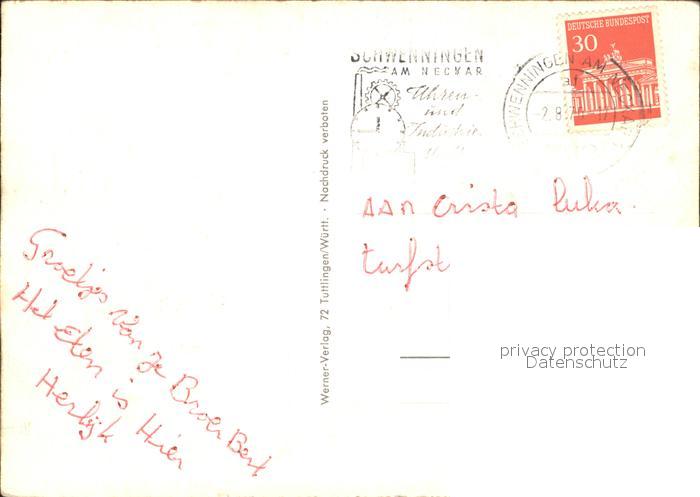 SCHWENNINGEN
AM NECKAR
Uhren-
und
Industrie
DEUTSCHE BUNDESPOST
30
SCHWENNINGEN AM
-2.8.
Werner-Verlag, 72 Tuttlingen/Württ. · Nachdruck verboten
aan Crista
turfst
Groetjes van je Broer Bert
Het eten is Hier
Herlijk
privacy protection
Datenschutz